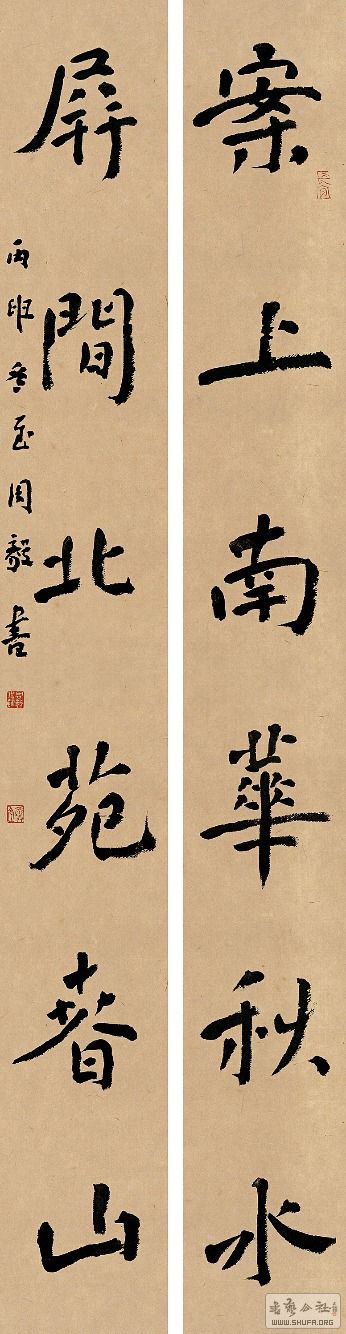 案上南華秋水
屏間北苑春山
丙申冬至周毅書
書藝公社
WWW.SHUFA.ORG